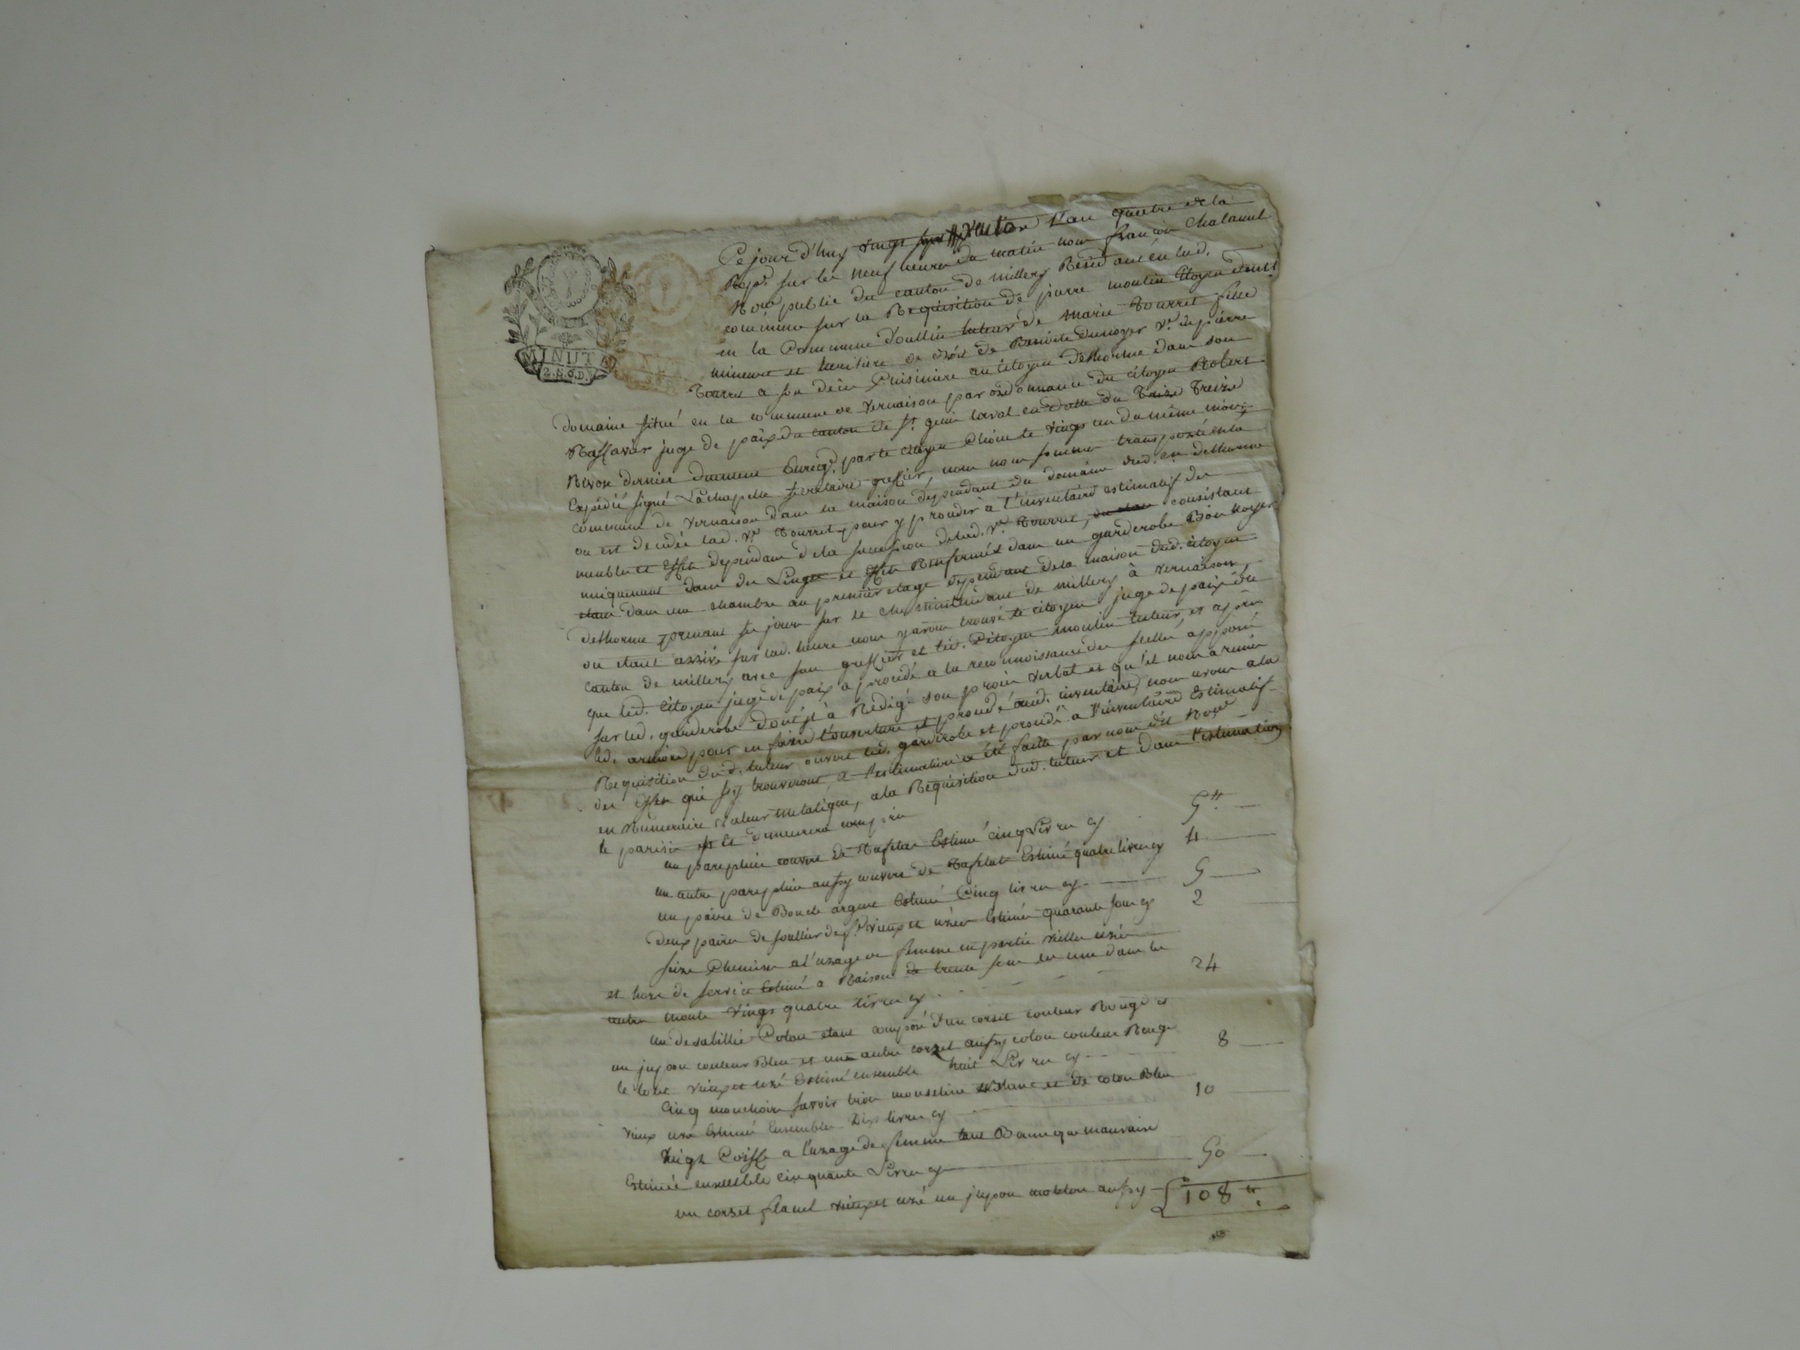 MINUTE
2. S. 6. D.
Ce jour d'huy vingt l'an quatre de la
Rep.e sur les neuf heures du matin nous françois Chalamel
No.re public du canton de millery Residant en lad.
commune sur la Requisition de pierre moulin Citoyen dem.t
en la Commune doullin tuteur de Marie Tourret fille
mineure et heritiere de droit de Benoite dunoyer v.e de pierre
Tourret a son decès Cuisiniere au citoyen Delhorme dans son
domaine situé en la commune de vernaison par ordonnance du citoyen Robert
juge de paix du canton de St. genis laval en datte du treize
Nivose dernier par le citoyen le vingt un du même mois
Expédié signé Lachapelle secretaire greffier, nous nous sommes transportés en la
commune de vernaison dans la maison dependant du domaine dud. cn delhorme
ou est decedée lad. v.e Tourret, pour y proceder à l'inventaire estimatif des
meubles et effets dependant de la succession de lad. v.e Tourret, consistant
uniquement dans des Linges et effets Renfermés dans un garderobe Bois noyer
etant dans une chambre au premier etage dependant de la maison dud. citoyen
delhorme prenant ses jours sur le chemin tendant de millery à vernaison,
ou etant arrivé sur lad. heure nous y avons trouvé le citoyen juge de paix du
canton de millery avec son greffier et led. Citoyen moulin tuteur, et après
que led. Citoyen juge de paix a procédé a la reconnoissance des scellés apposés
sur led. garderobe dont il à Rédigé son procès verbal et qu'il nous a remis
lad. pour en faire l'ouverture et procedé aud. inventaire, nous avons a la
Requisition dud. tuteur ouvert led. garderobe et procedé a l'inventaire estimatif
des effets qui s'y trouveront l'estimation a été faite par nous dit No.re
en Numeraire valeur metalique, a la Requisition dud. tuteur et dans l'estimation
le parisis et demeurera compris
un parepluie couvert de Tafetas Estimé cinq Livres cy 5 tt
un autre parepluie aussy couvert de Tafetas Estimé quatre livres cy 4
un paire de Boucle argent Estimé Cinq livres cy 5
deux paires de soullier de f.e vieux et usées Estimés quarante sous cy 2
seize Chemises a l'uzage de femme en partie vielles usées
et hors de service Estimé a Raison de trente sous les une dans les
autre monte vingt quatre livres cy 24
un desabillié Coton etant composé d'un corset couleur Rouge et
un jupon couleur Bleu et un autre corset aussy coton couleur Rouge
le tout vieux et usé Estimé ensemble huit Livres cy 8
Cinq mouchoirs savoir trois mousseline Blanc et de coton Bleu
vieux usé Estimé Ensembles dix livres cy 10
vingt Coiffe a l'uzage de femme tant Bonne que mauvaise
Estimée ensemble cinquante Livres cy 50
un corset flanel vieux et usé un jupon molleton aussy 108 tt